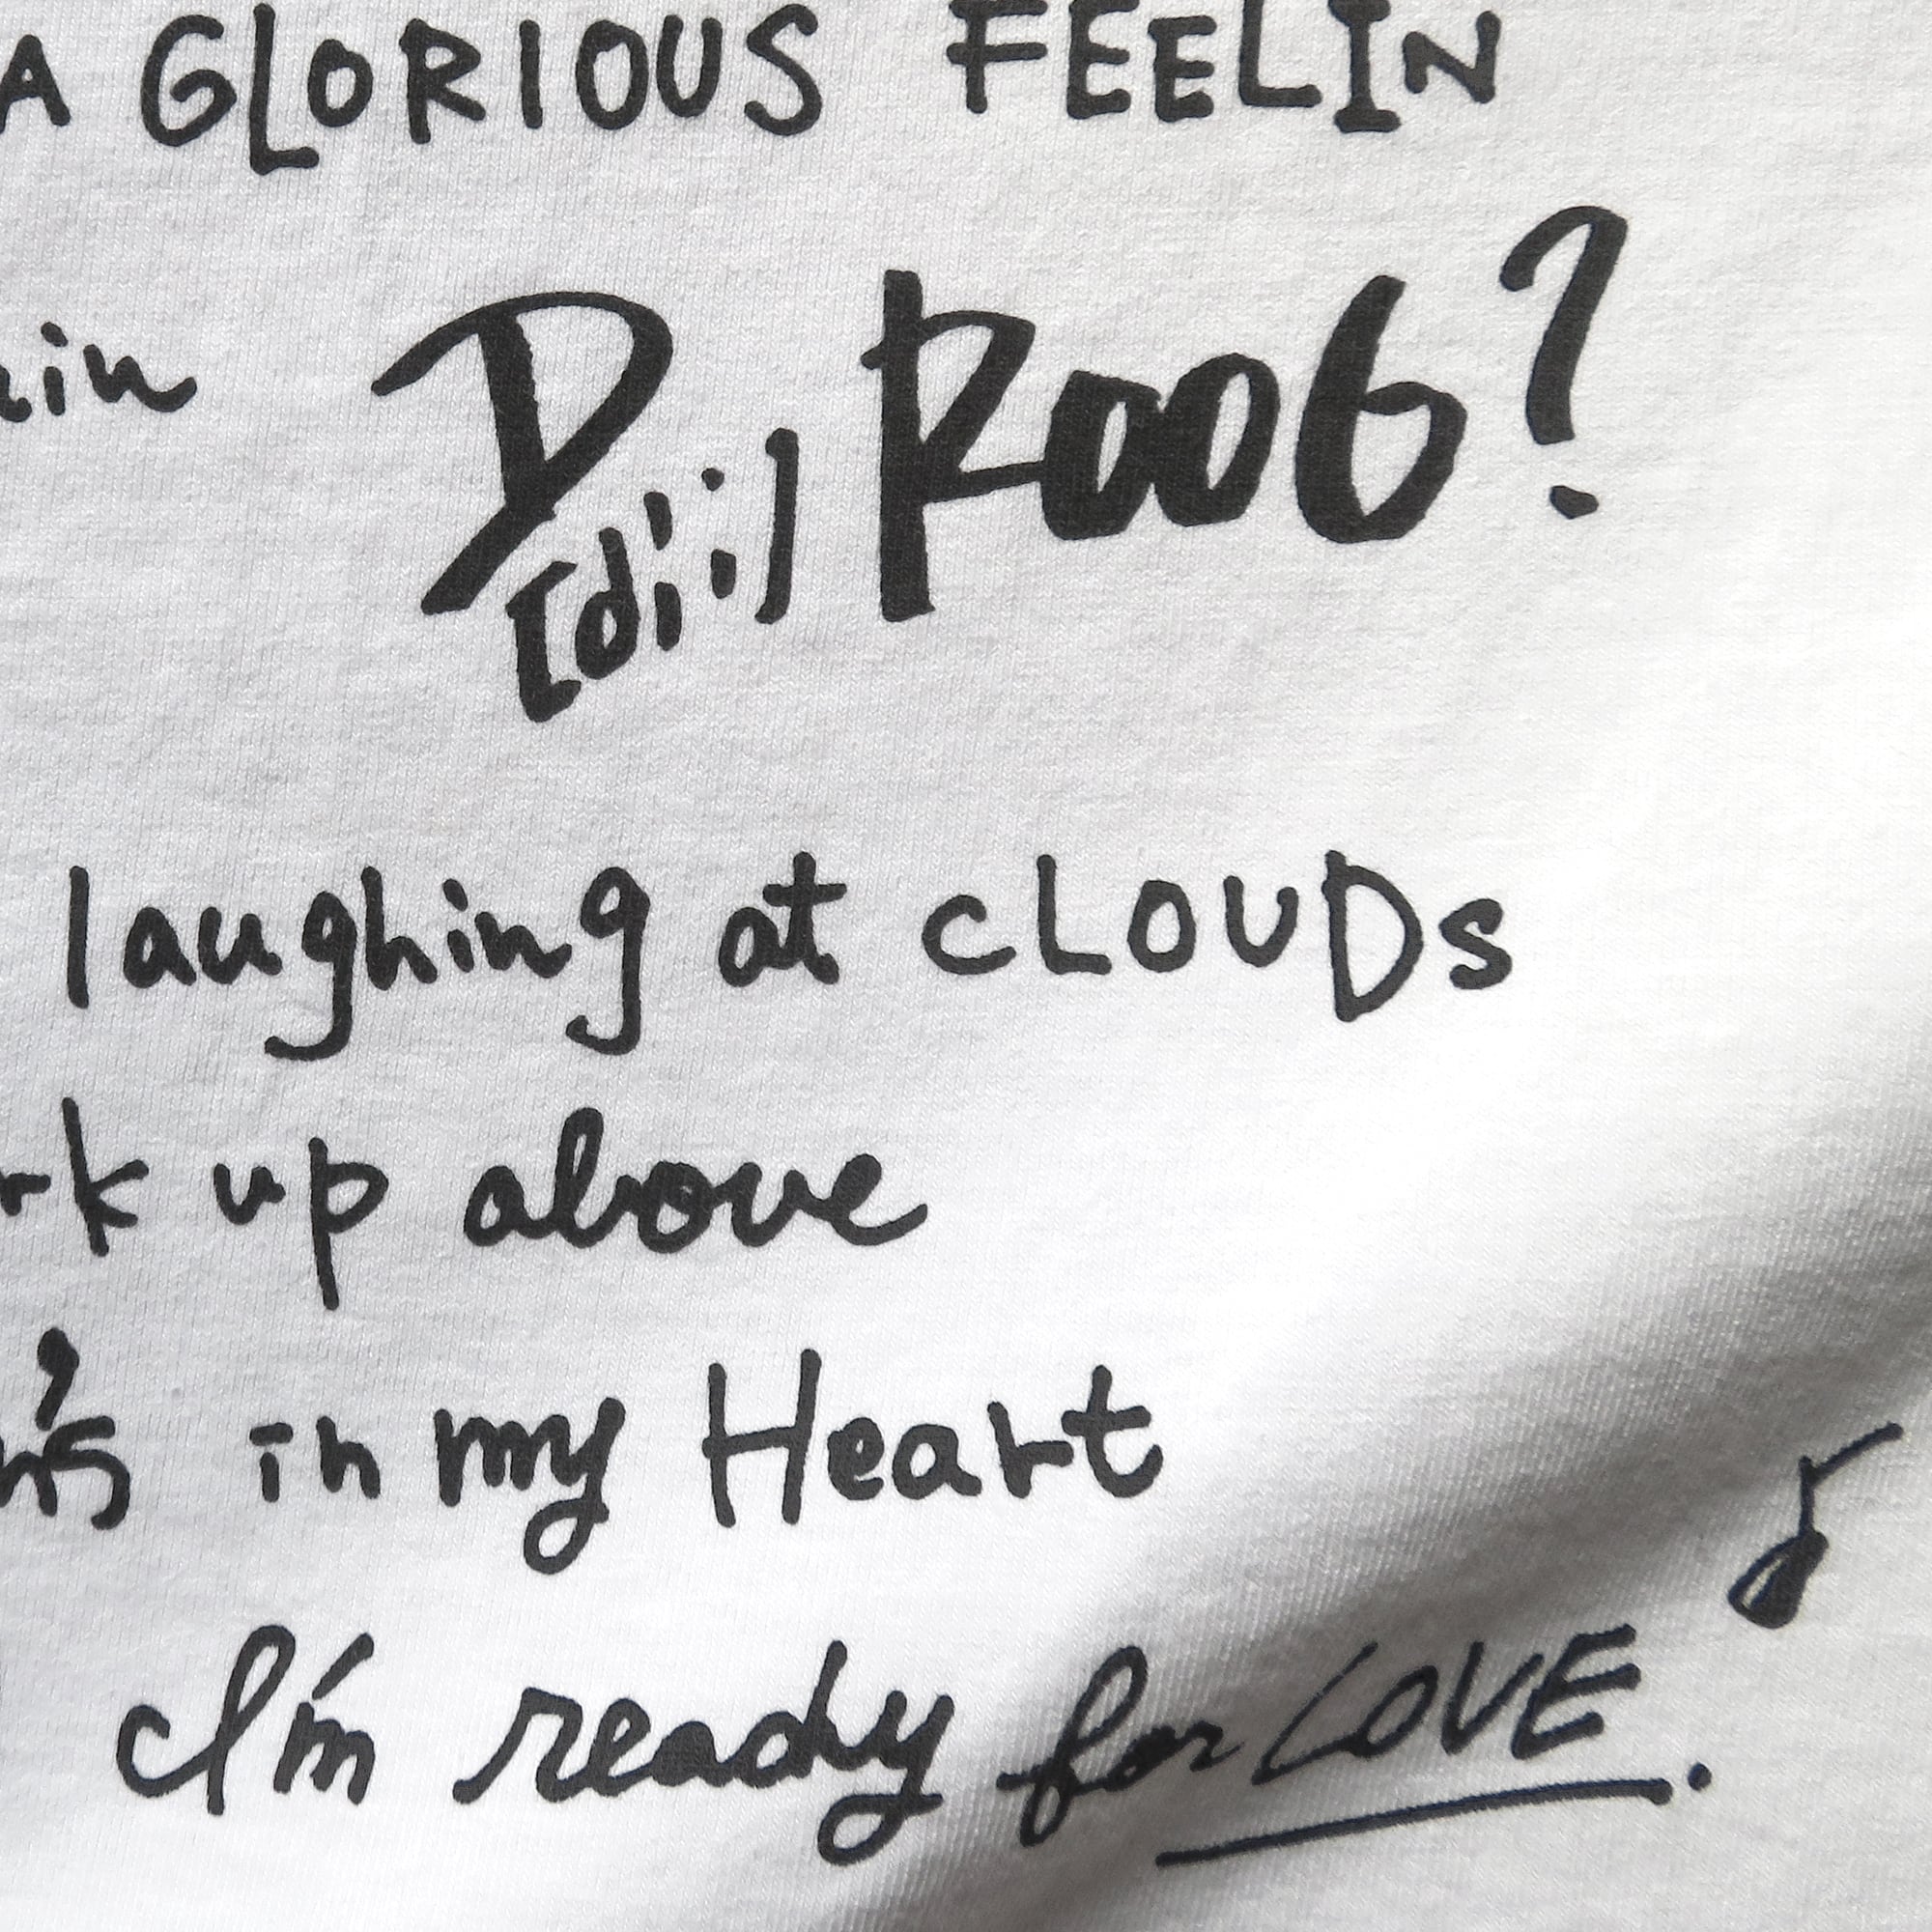 A GLORIOUS FEELIN
D ROOG?
[di:]
laughing at CLOUDS
up above
in my Heart
I'm ready for LOVE.